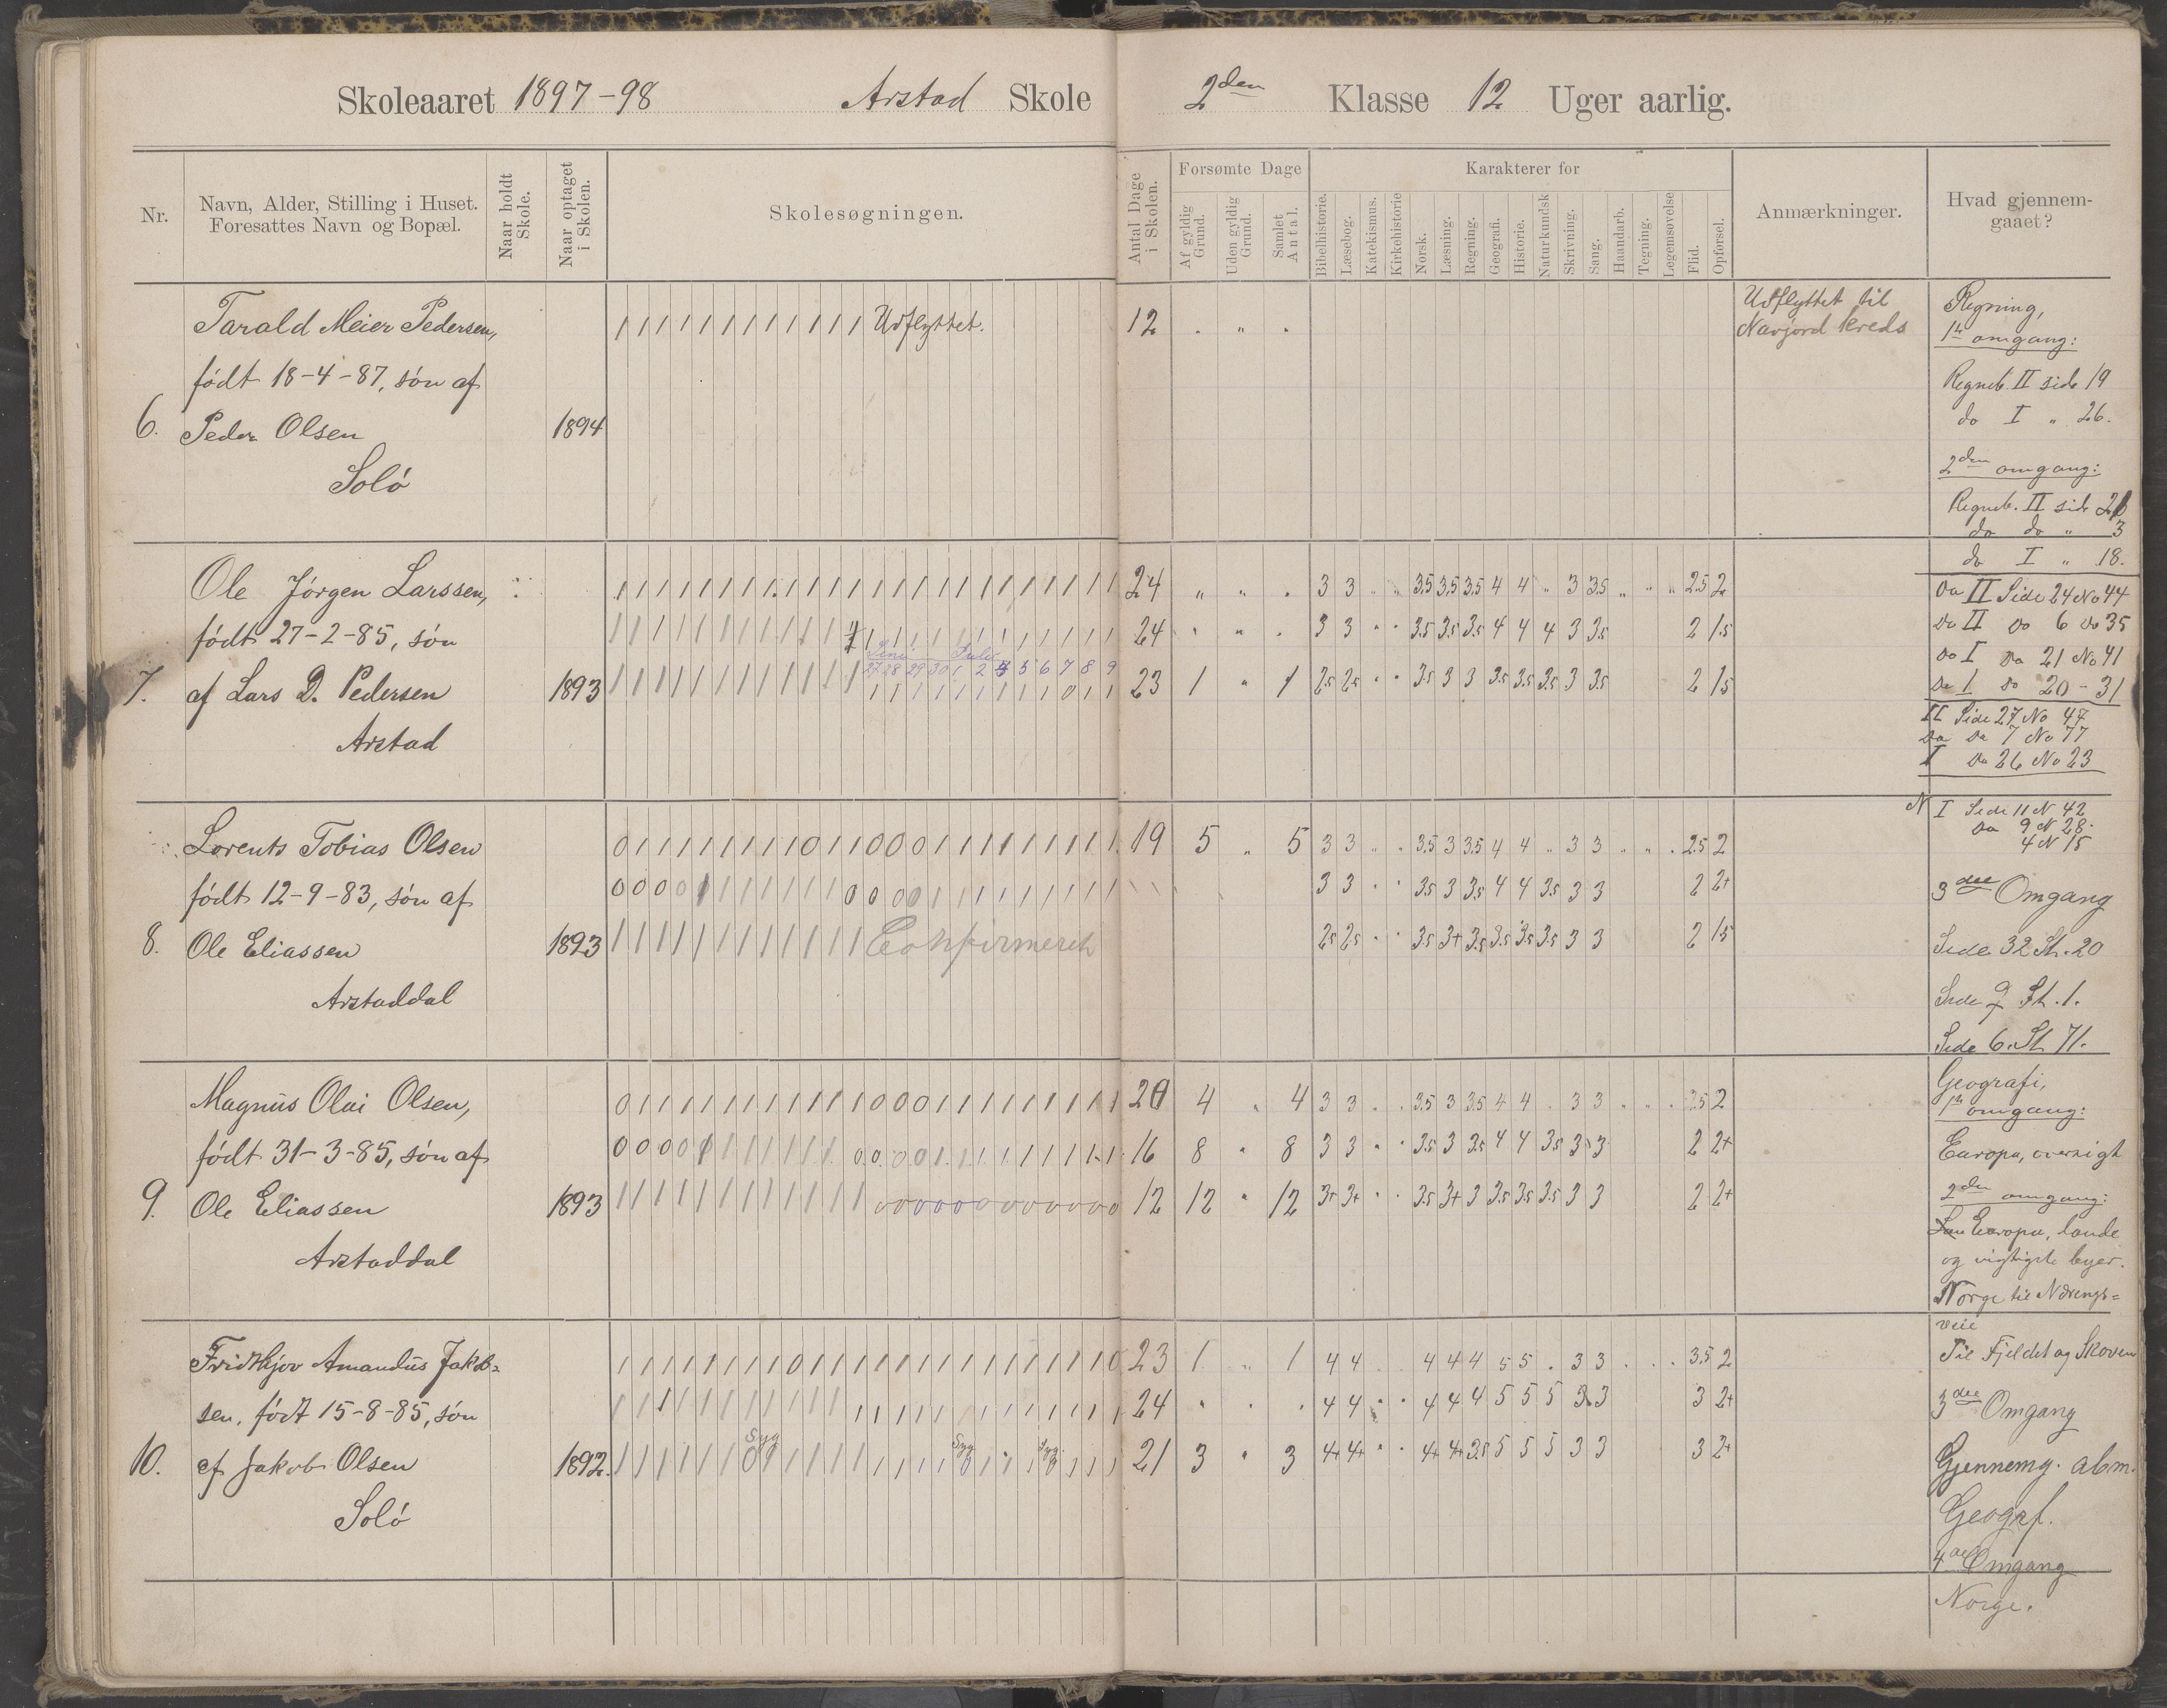 Skoleaaret 1897-98 Arstad Skole 2den Klasse 12 Uger aarlig.
Nr.
Navn, Alder, Stilling i Huset.
Foresattes Navn og Bopæl.
Naar holdt
Skole.
Naar optaget
i Skolen.
Skolesøgningen.
Antal Dage
i Skolen.
Forsømte Dage
Af gyldig
Grund.
Uden gyldig
Grund.
Samlet
Antal.
Karakterer for
Bibelhistorie.
Læsebog.
Katekismus.
Kirkehistorie
Norsk.
Læsning.
Regning.
Geografi.
Historie.
Naturkundsk
Skrivning.
Sang.
Haandarb.
Tegning.
Legemsøvelse
Flid.
Opførsel.
Anmærkninger.
Hvad gjennem-
gaaet?
6.
Tarald Meier Pedersen,
født 18-4-87, søn af
Peder Olsen
Solø
1894
1 1 1 1 1 1 1 1 1 1 1 1 Udflyttet.
12 . " .
Udflyttet til
Navjord kreds
7.
Ole Jørgen Larssen,
født 27-2-85, søn
af Lars D. Pedersen
Arstad
1893
Juni Juli
27 28 29 30 1 2 3 5 6 7 8 9
24 " " . 3 3 " " 3.5 3.5 3.5 4 4 " 3 3.5 " " " 2.5 2
24 " " . 3 3 " " 3.5 3.5 3.5 4 4 4 3 3.5 2 1.5
23 1 " 1 2.5 2.5 " " 3.5 3 3 3.5 3.5 3.5 3 3.5 2 1.5
8.
Lorents Tobias Olsen
født 12-9-83, søn af
Ole Eliassen
Arstaddal
1893
0 1 1 1 1 1 1 1 1 0 1 1 0 0 0 1 1 1 1 1 1 1 1 1
0 0 0 0 1 1 1 1 1 1 1 0 0 0 0 1 1 1 1 1 1 1 1 1
1 1 1 1 1 1 1 1 1 1 1 1 Confirmeret
19 5 " 5 3 3 " " 3.5 3 3.5 4 4 " 3 3 " " . 2.5 2
3 3 " " 3.5 3 3.5 4 4 3.5 3 3 2 2+
2.5 2.5 " " 3.5 3+ 3.5 3.5 3.5 3.5 3 3 2 1.5
9.
Magnus Olai Olsen,
født 31-3-85, søn af
Ole Eliassen
Arstaddal
1893
0 1 1 1 1 1 1 1 1 1 1 1 0 0 0 1 1 1 1 1 1 1 1 1
0 0 0 0 1 1 1 1 1 1 1 0 0 0 0 1 1 1 1 1 1 1 1 1
1 1 1 1 1 1 1 1 1 1 1 1 0 0 0 0 0 0 0 0 0 0 0 0
20 4 " 4 3 3 . . 3.5 3 3.5 4 4 . 3 3 . . . 2.5 2
16 8 " 8 3 3 " " 3.5 3 3.5 4 4 3.5 3 3 2 2+
12 12 " 12 3+ 3+ " " 3.5 3+ 3 3.5 3.5 3.5 3 3 2 2+
10.
Fridthjov Amandus Jakob-
sen, født 15-8-85, søn
af Jakob Olsen
Solø
1892.
Syg Syg Syg.
23 1 " 1 4 4 . . 4 4 4 5 5 . 3 3 . . . 3.5 2
24 " " . 4 4 " " 4 4 4 5 5 5 3 3 3 2+
21 3 " 3 4+ 4+ " " 4+ 4+ 3.5 5 5 5 3 3 3 2+
Regning,
1ste omgang:
Regneb. II side 19
do I " 26.
2den omgang:
Regneb. II side 21
do do " 3
do I " 18.
Do II Side 24 No 44
Do II Do 6 Do 35
Do I Do 21 No 41
Do I Do 20 - 31
II Side 27 No 47
Do Do 7 No 77
I Do 26 No 23
N I Side 11 N 42
Do 9 N 28.
4 N 15
3die Omgang
Side 32 St. 20
Side 9 St. 1.
Side 6. St 71.
Geografi,
1ste omgang:
Europa, oversigt
2den omgang:
Europa, lande
og vigtigste byer.
Norge til Nærings=
veie
Til Fjeldet og Skoven
3die Omgang
Gjennemg. alm.
Geogrf.
4de Omgang
Norge.